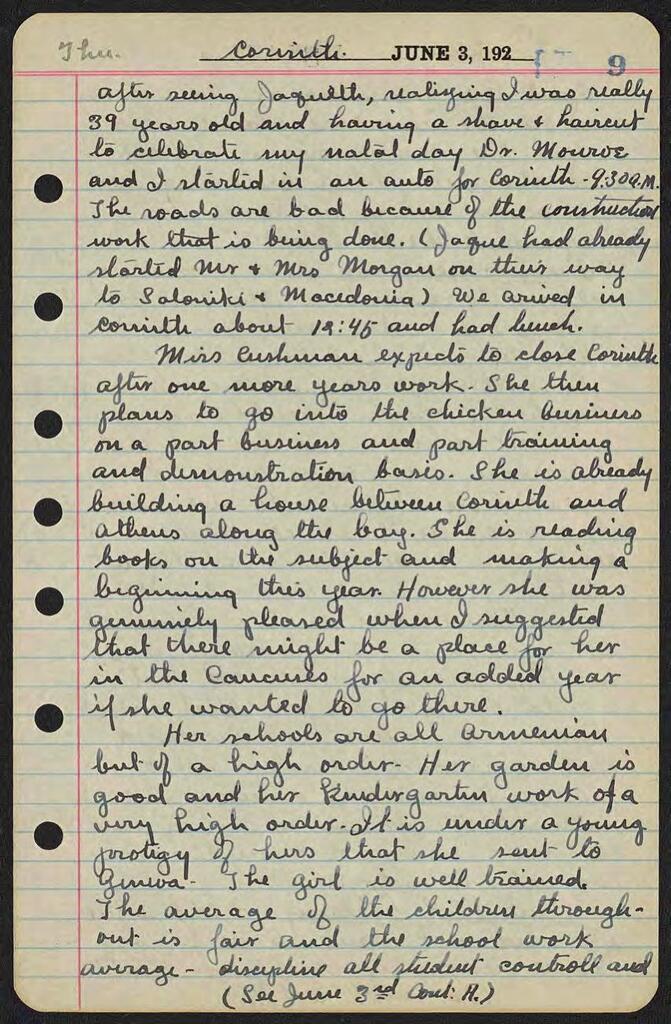 Thu. Corinth. JUNE 3, 192 5 9
after seeing Jaquith, realizing I was really
39 years old and having a shave & haircut
to celebrate my natal day Dr. Monroe
and I started in an auto for Corinth - 9:30 A.M.
The roads are bad because of the construction
work that is being done. (Jaque had already
started Mr & Mrs Morgan on their way
to Saloniki & Macedonia) We arived in
Corinth about 12:45 and had lunch.
Miss Cushman expects to close Corinth
after one more years work. She then
plans to go into the chicken business
on a part business and part training
and demonstration basis. She is already
building a house between Corinth and
Athens along the bay. She is reading
books on the subject and making a
beginning this year. However she was
genuinely pleased when I suggested
that there might be a place for her
in the Caucuses for an added year
if she wanted to go there.
Her schools are all Armenian
but of a high order - Her garden is
good and her Kindergarten work of a
very high order. It is under a young
protigy of hers that she sent to
Geneva - The girl is well trained.
The average of the children through-
out is fair and the school work
average - discipline all student controll and
(See June 3rd Cont. A.)